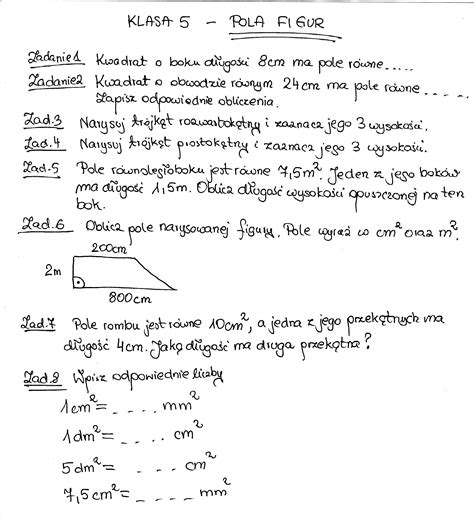 KLASA 5 - POLA FIGUR
Zadanie1 Kwadrat o boku długości 8cm ma pole równe.....
Zadanie2 Kwadrat o obwodzie równym 24cm ma pole równe.....
Zapisz odpowiednie obliczenia.
Zad.3 Narysuj trójkąt rozwartokątny i zaznacz jego 3 wysokości.
Zad.4 Narysuj trójkąt prostokątny i zaznacz jego 3 wysokości.
Zad.5 Pole równoległoboku jest równe 7,5m². Jeden z jego boków
ma długość 1,5m. Oblicz długość wysokości opuszczonej na ten
bok.
Zad.6 Oblicz pole narysowanej figury. Pole wyraź w cm² oraz m².
200cm
2m
800cm
Zad.7 Pole rombu jest równe 10cm², a jedna z jego przekątnych ma
długość 4cm. Jaką długość ma druga przekątna?
Zad.8 Wpisz odpowiednie liczby
1cm² = _ _ _ _ mm²
1dm² = _ _ _ _ cm²
5dm² = _ _ _ cm²
7,5cm² = _ _ _ _ mm²